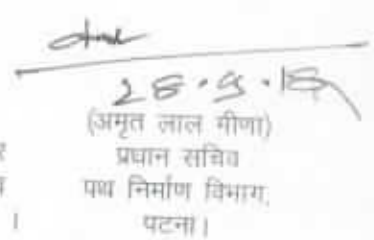 28.9.18
(अमृत लाल मीणा)
प्रधान सचिव
पथ निर्माण विभाग,
पटना।
।